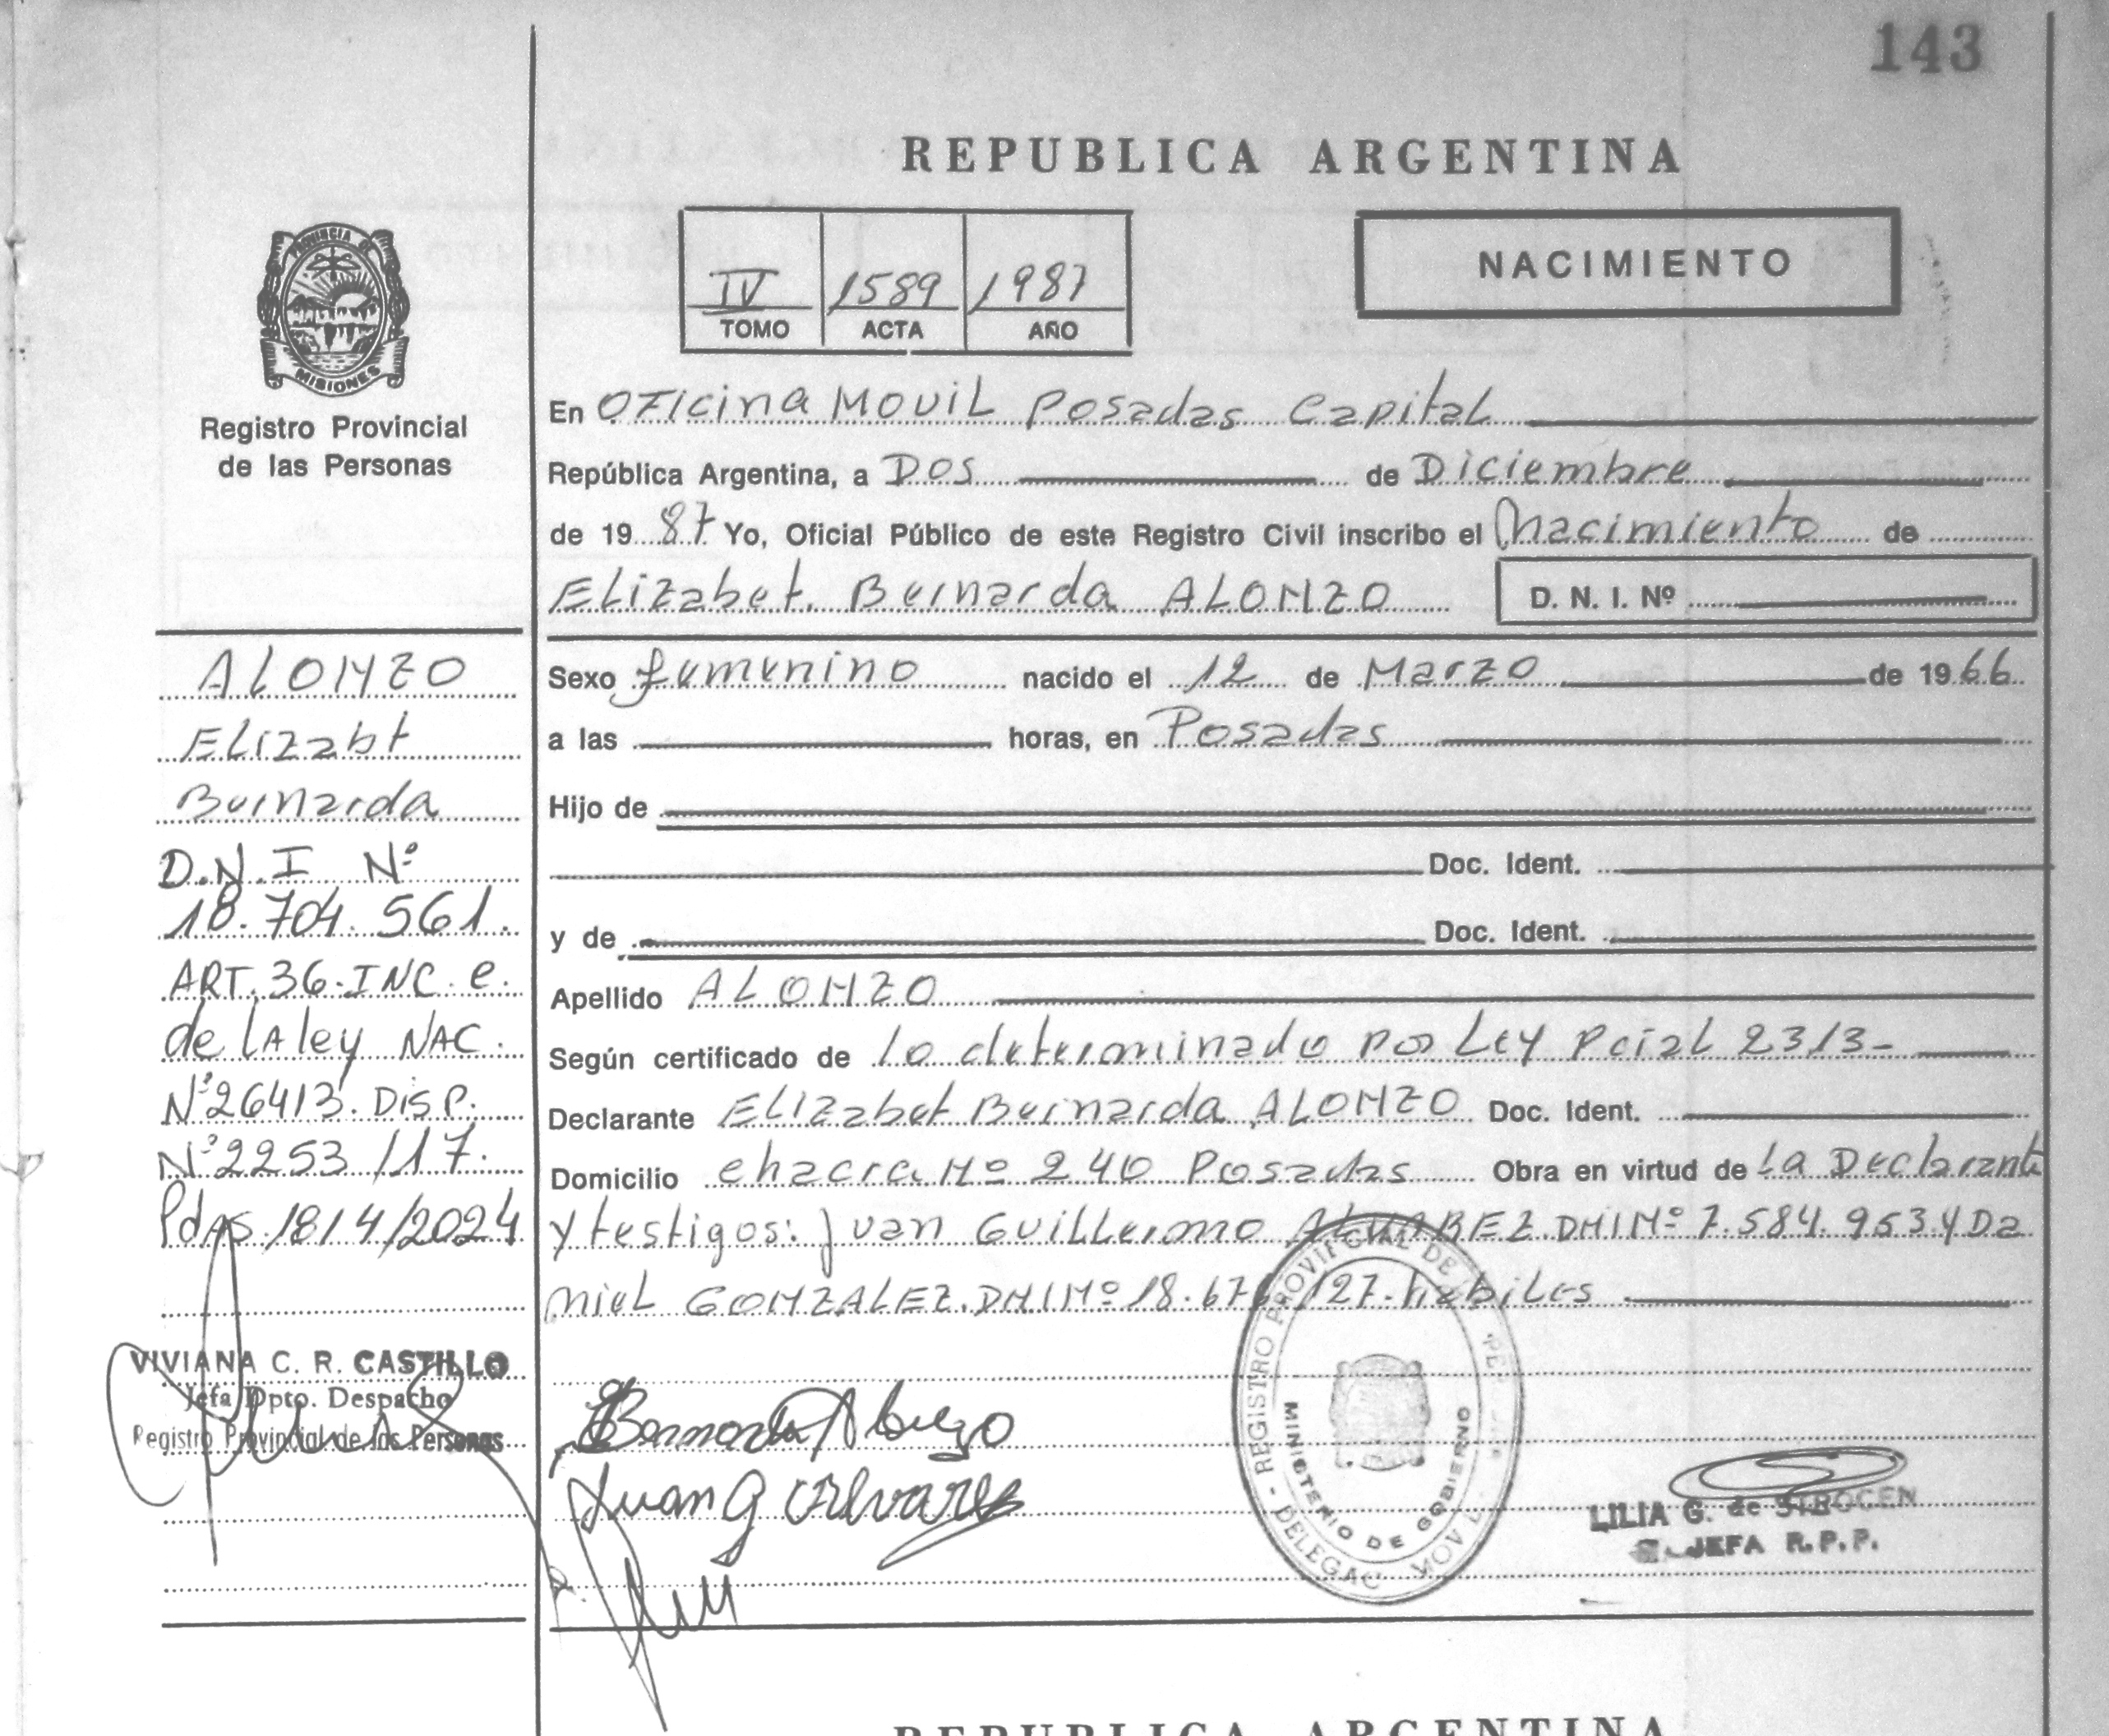 143
REPUBLICA ARGENTINA
PROVINCIA DE
MISIONES
Registro Provincial
de las Personas
IV 1589 1987
TOMO ACTA AÑO
NACIMIENTO
En OFicina MOVIL Posadas Capital
República Argentina, a Dos de Diciembre
de 19 87 Yo, Oficial Público de este Registro Civil inscribo el Nacimiento de
Elizabet Bernarda ALONZO D. N. I. Nº
ALONZO
Elizabt
Bernarda
D.N.I Nº
18.704.561.
ART. 36-INC. e.
de LA ley NAC.
Nº26413. DISP.
Nº2253/17.
Pdas. 18/4/2024
VIVIANA C. R. CASTILLO
Jefa Dpto. Despacho
Registro Provincial de las Personas
Sexo femenino nacido el 12 de Marzo de 1966
a las horas, en Posadas
Hijo de
Doc. Ident.
y de Doc. Ident.
Apellido ALONZO
Según certificado de lo determinado por Ley Pcial 2313-
Declarante Elizabet Bernarda ALONZO Doc. Ident.
Domicilio chacra Nº 240 Posadas Obra en virtud de La Declarante
y testigos: Juan Guillermo ALVAREZ.DNI Nº 7.584.953.y Da
niel GONZALEZ.DNI Nº 18.676.127.habiles
Bernarda Alonzo
Juan G Alvarez
REGISTRO PROVINCIAL DE PE
MINISTERIO DE GOBIERNO
DELEGAC MOV
LILIA G. de SIROCEN
JEFA R.P.P.
REPUBLICA ARGENTINA